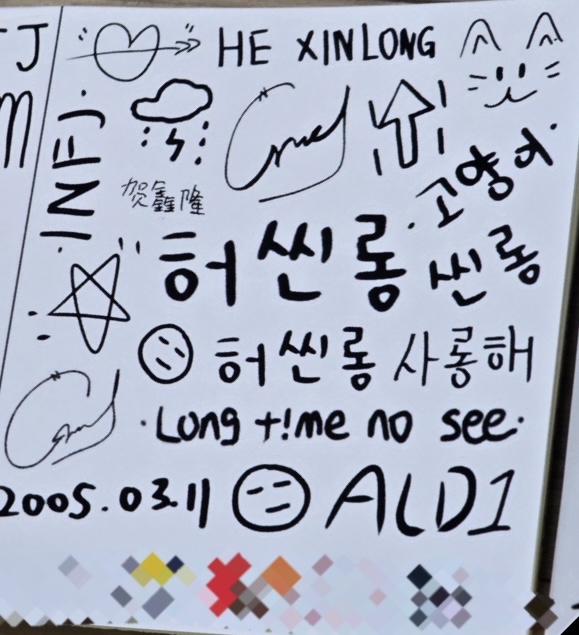 J
HE XINLONG
m
INFJ
贺鑫隆
고양이
허씬롱
씬롱
허씬롱 사롱해
Long t!me no see
2005.03.11
ALD1